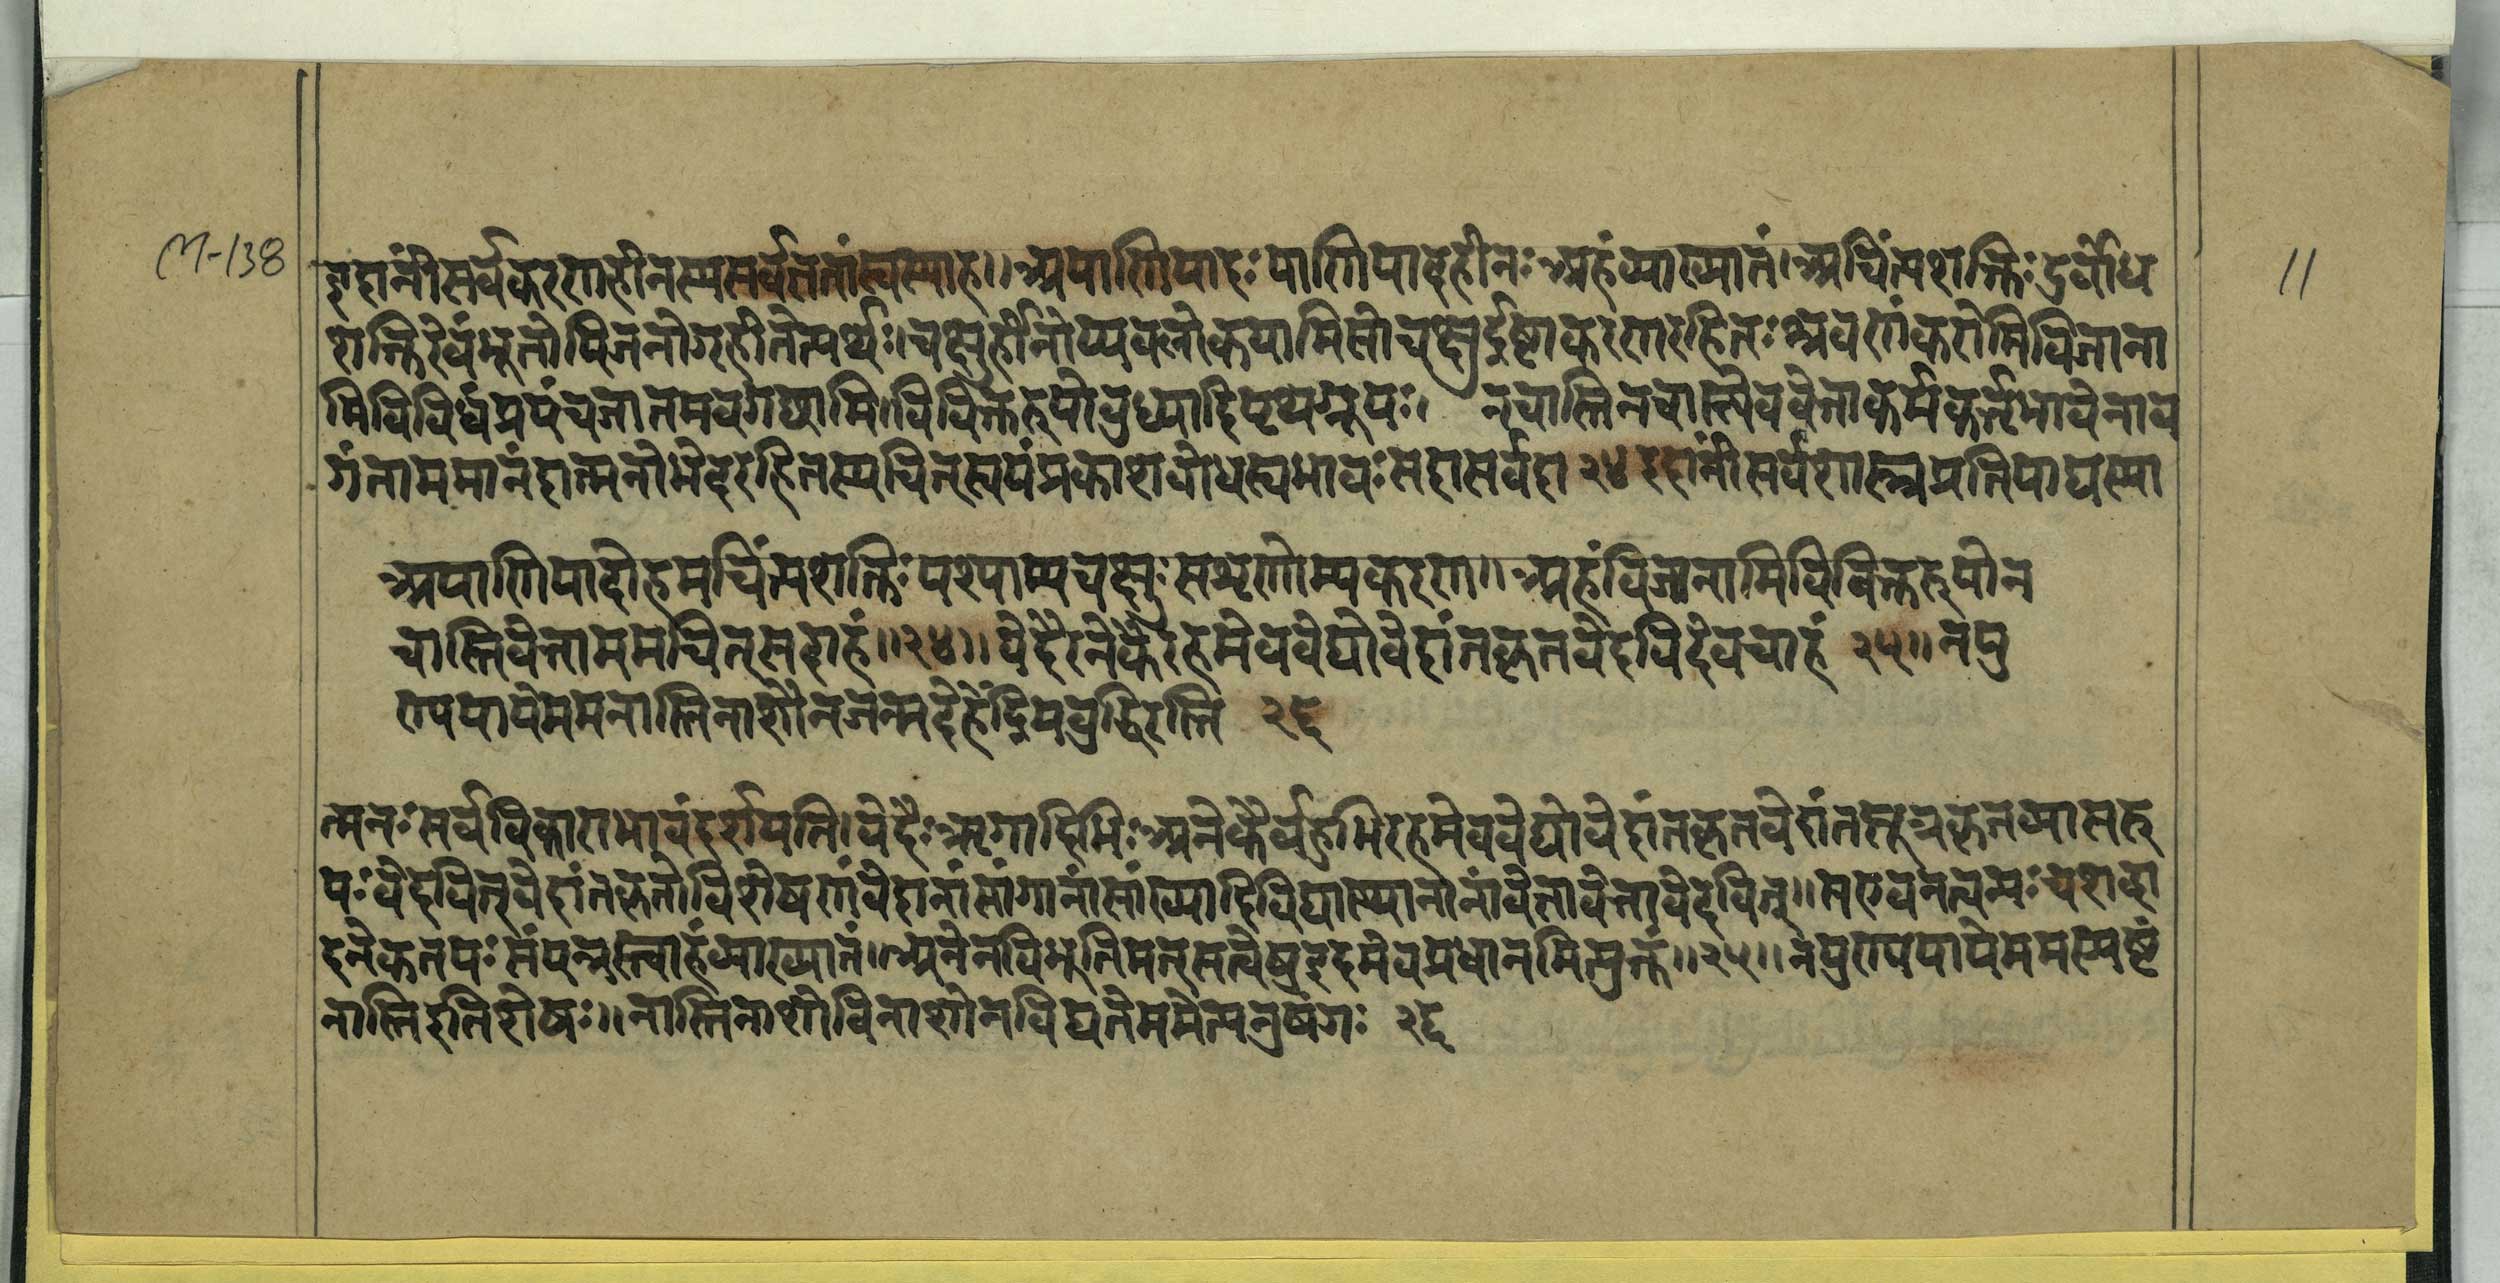 M-138
11
इदानीं सर्वकरणहीनस्य सर्वगततां स्वस्याह।। अपाणिपादः पाणिपादहीनः अहं व्याख्यातं। अचिंत्यशक्तिः दुर्बोध
शक्तिरेवंभूतोपि जनो गृहीतेत्यर्थः। चक्षुर्हीनोप्यवलोकयामि सोचक्षुर्द्रष्टा करणरहितः श्रवणं करोमि विजाना
मि विविधं प्रपंचजातमवगछामि। विविक्तरूपो बुध्यादिपृथग्रूपः। नचास्ति नचास्त्येव वेत्ता कर्मकर्तृभावेनाव
गंता मम मानंदात्मनो भेदरहितस्य चित् स्वयंप्रकाशबोधस्वभावः सदा सर्वदा २४ इदानीं सर्वशास्त्रप्रतिपाद्यस्या
अपाणिपादोहमचिंत्यशक्तिः पश्याम्यचक्षुः सशृणोम्यकरण।। अहं विजानामि विविक्तरूपो न
चास्ति वेत्ता मम चित् सदाहं ।।२४।। वेदैरनेकैरहमेव वेद्यो वेदांतकृतवेदविदेव चाहं २५।। न पु
ण्यपापे मम नास्ति नाशो न जन्म देहेंद्रियबुद्धिरस्ति २६
त्मनः सर्वविकाराभावं दर्शयति। वेदैः ऋगादिभिः अनेकैर्बहुभिरहमेव वेद्यो वेदांतकृतवेदांतसूत्रकृतव्यासरू
पः वेदवित् वेदांतकृतो विशेषणं वेदानां सांगानां सांख्यादिविद्यास्थानानां वेत्ता वेत्ता वेदवित्।। स एव नत्वन्यः च शब्दा
दनेकतपः संपन्नस्त्वाहं व्याख्यातं। अनेन विभूतिमत् सत्वेषु इदमेव प्रधानमित्युक्तं।।२५।। न पुण्यपापे मम स्पष्टं
नास्ति इति शेषः।। नास्ति नाशो विनाशो न विद्यते ममेत्यनुषंगः २६